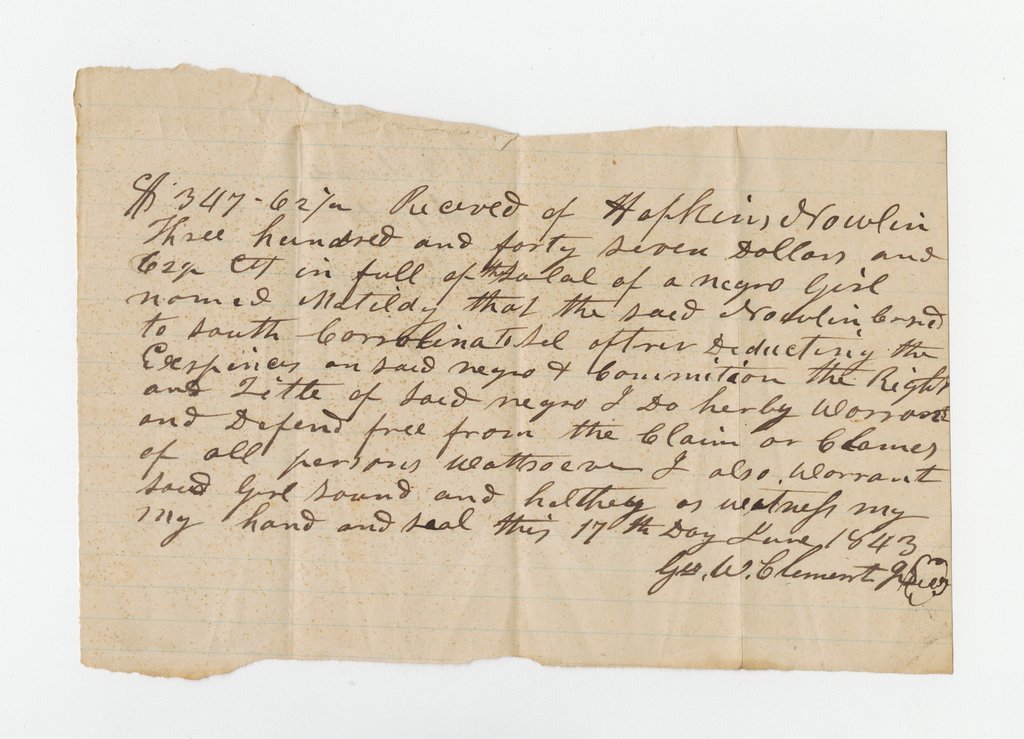 $347-62½ Received of Hopkins Nowlin
Three hundred and forty seven Dollars and
62½ Cts in full of the salal of a negro Girl
named Matildy that the said Nowlin Carid
to South Corrolina to Sel aftrer Deducting the
Exspinces on said negro & Commition the Right
and Titte of said negro I Do herby Worront
and Defend free from the Claim or Clames
of all persons Wattsoever I also Worrant
said Girl sound and helthey as witness my
my hand and seal this 17th Day June 1843
Geo. W. Clement